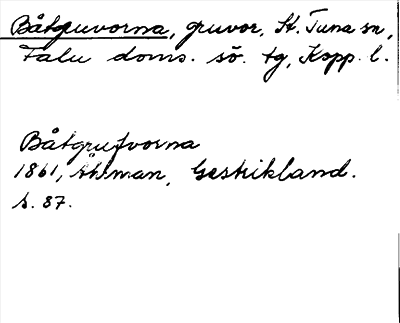 Båtgruvorna, gruvor, St. Tuna sn,
Falu doms. sö. tg, Kopp. l.
Båtgrufvorna
1861, Åhrman, Gestrikland.
s. 87.